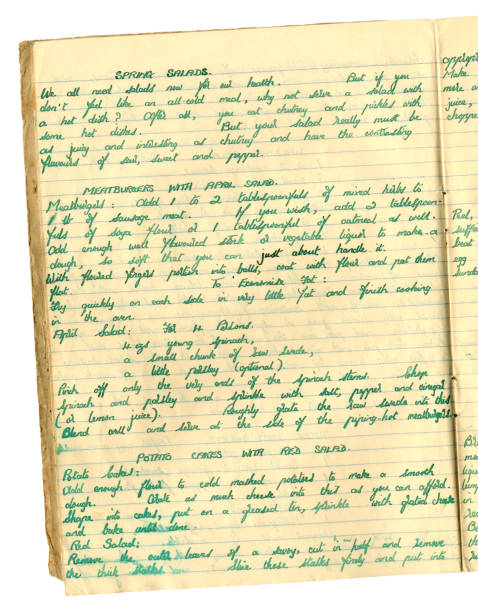 SPRING SALADS.
We all need salads now for our health. But if you
don't feel like an all-cold meal, why not serve a salad with
a hot dish? After all, you eat chutney and pickles with
some hot dishes. But your salad really must be
as juicy and interesting as chutney and have the contrasting
flavours of sour, sweet and pepper.
MEATBURGERS WITH APRIL SALAD.
Meatburgers: Add 1 to 2 tablespoonfuls of mixed herbs to
1 lb of sausage meat. If you wish, add 2 tablespoon-
fuls of soya flour or 1 tablespoonful of oatmeal as well.
Add enough well flavoured stock or vegetable liquor to make a
dough, so soft that you can just about handle it.
With floured fingers portion into balls, coat with flour and put them
flat. To Economise Fat:
Fry quickly on each side in very little fat and finish cooking
in the oven.
April Salad: For 4 Persons.
4 ozs young spinach,
a small chunk of raw swede,
a little parsley (optional).
Pick off only the very ends of the spinach stems. Chop
spinach and parsley and sprinkle with salt, pepper and vinegar
(or lemon juice). Roughly grate the raw swede into this
Blend well and serve at the side of the piping-hot meatburgers.
POTATO CAKES WITH RED SALAD.
Potato Cakes:
Add enough flour to cold mashed potatoes to make a smooth
dough. Grate as much cheese into this as you can afford.
Shape into cakes, put on a greased tin, sprinkle with grated cheese
and bake until done.
Red Salad:
Remove the outer leaves of a savoy, cut in half and remove
the thick stalks. Slice these stalks finely and put into
Make
more
juice,
beat
egg